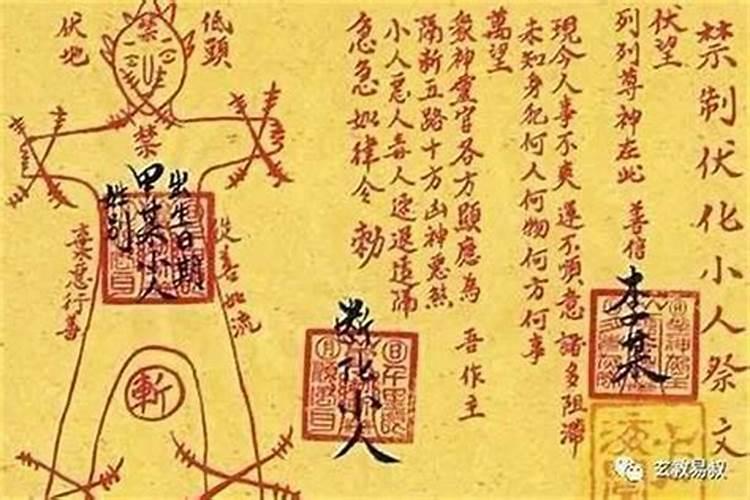 禁制伏化小人祭文
伏望
列列尊神在此 善信
李某
現今人事不爽 運不順意 諸多阻滯
未知身犯何人何物何方何事
萬望
眾神靈官各方顯應為 吾作主
隔斬五路十方凶神惡煞
小人惡人毒人速退遠隔
急急如律令 勅
斬化小人
低頭
伏地
禁
禁
出生日期
甲某小人
姓別
從善如流
棄惡行善
斬
玄教易叔